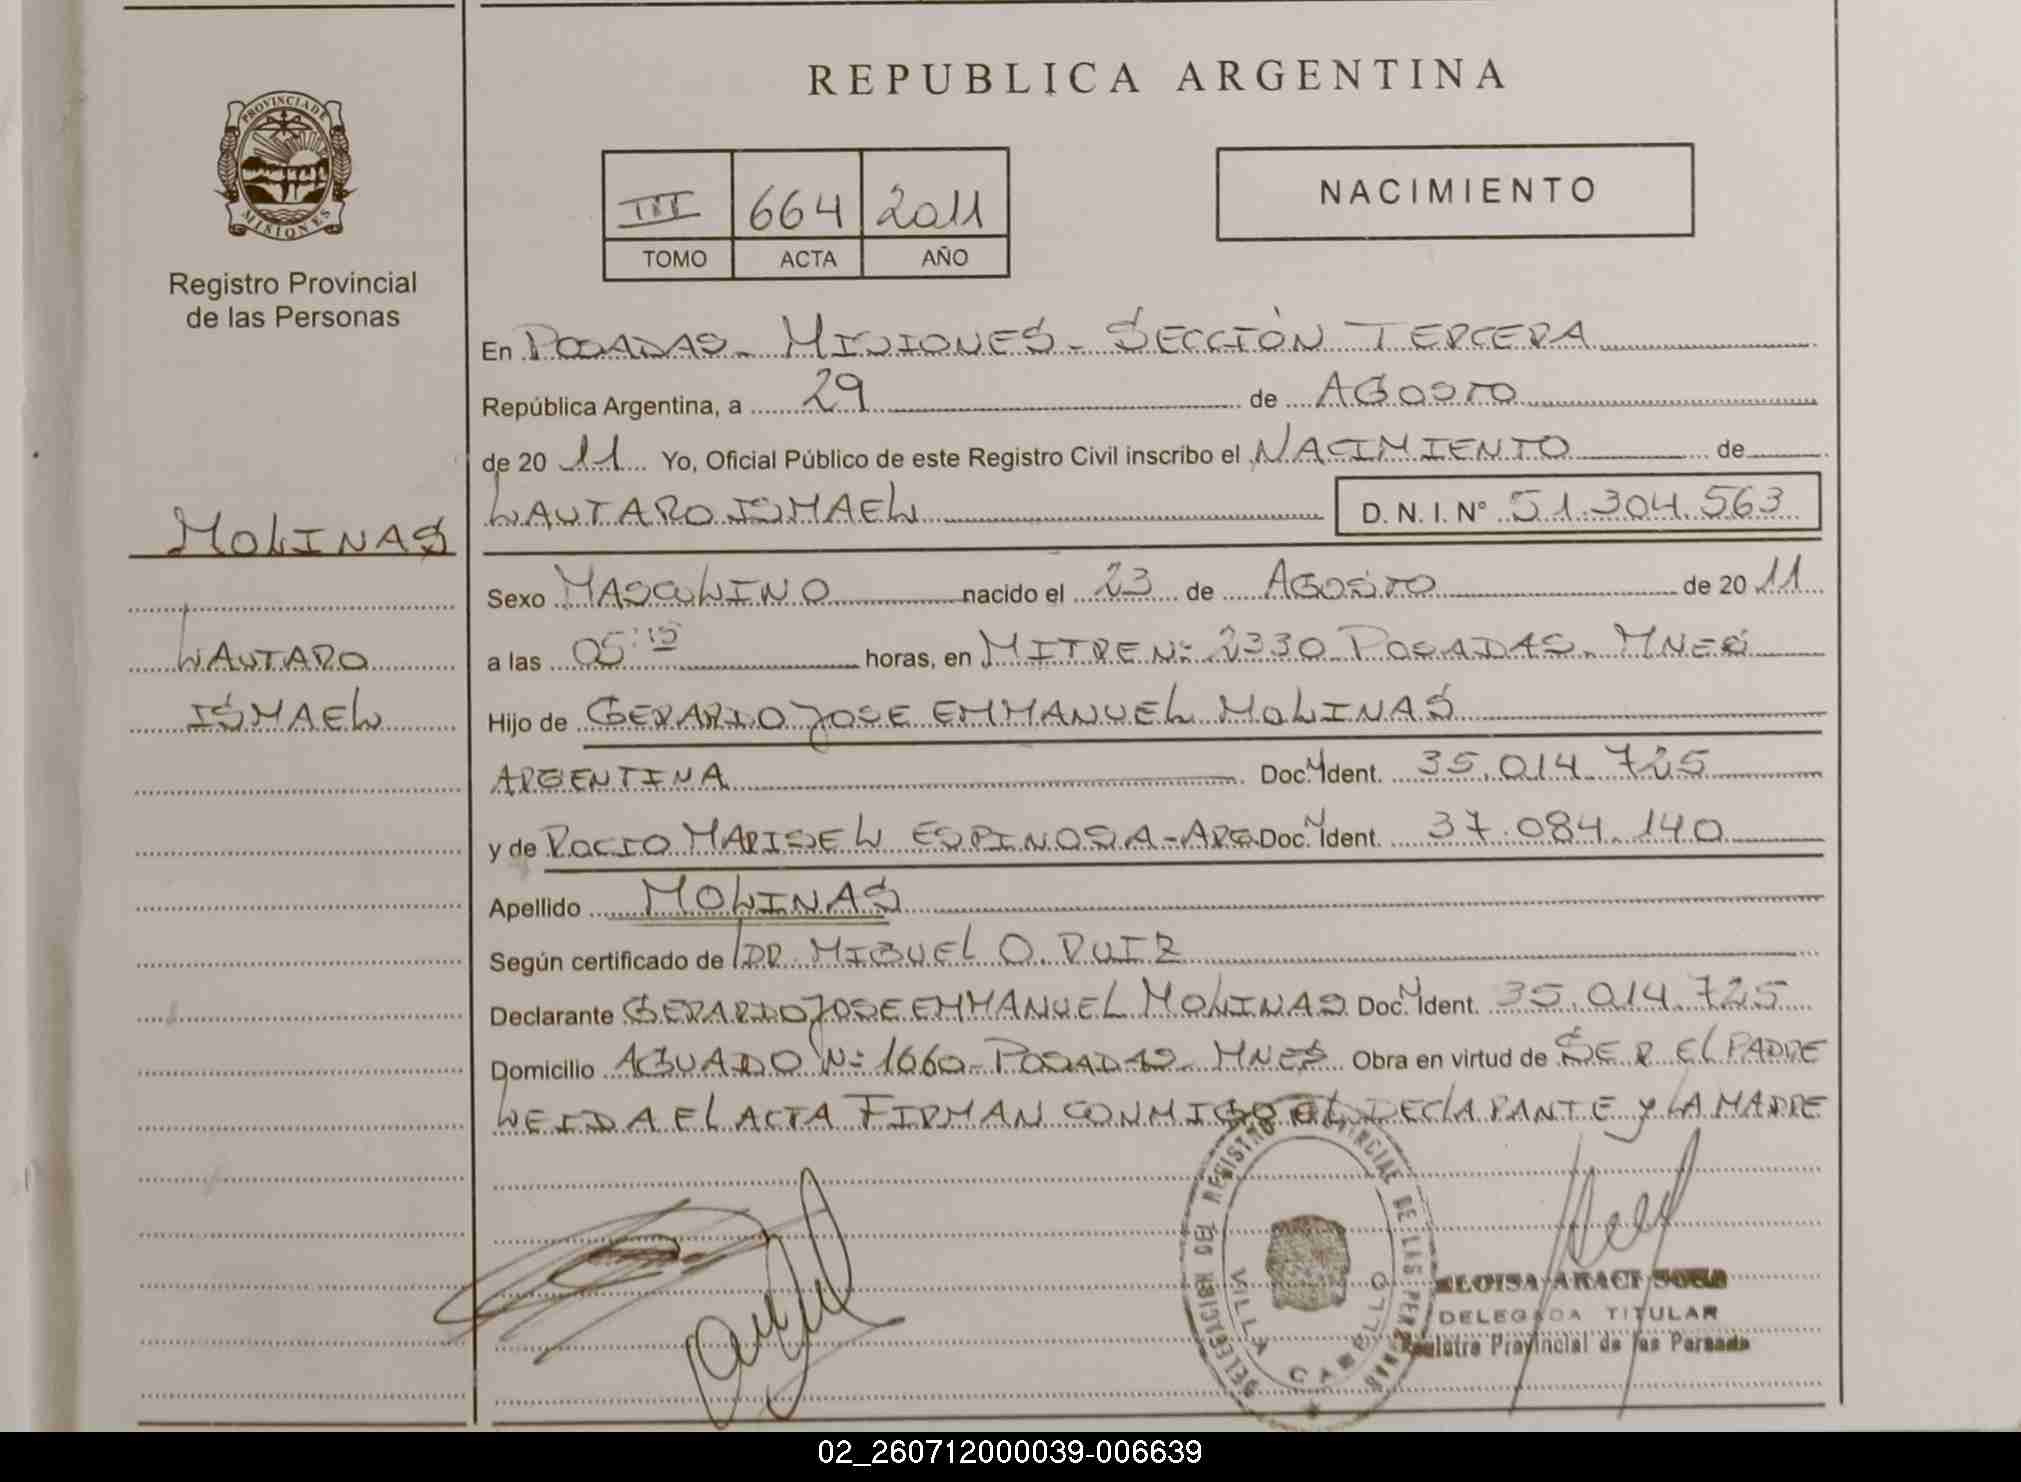 REPUBLICA ARGENTINA
PROVINCIA DE MISIONES
Registro Provincial
de las Personas
III 664 2011
TOMO ACTA AÑO
NACIMIENTO
En POSADAS - MISIONES - SECCIÓN TERCERA
República Argentina, a 29 de AGOSTO
de 20 11 Yo, Oficial Público de este Registro Civil inscribo el NACIMIENTO de
LAUTARO ISMAEL D. N. I. N° 51.304.563
MOLINAS
LAUTARO
ISMAEL
Sexo MASCULINO nacido el 23 de AGOSTO de 20 11
a las 05:15 horas, en MITRE Nº 2330 POSADAS - MNES
Hijo de GERARDO JOSE EMMANUEL MOLINAS
ARGENTINA Doc. Ident. 35.014.725
y de ROCIO MARISEL ESPINOSA - ARG Doc. Ident. 37.084.140
Apellido MOLINAS
Según certificado de DR. MIGUEL O. RUIZ
Declarante GERARDO JOSE EMMANUEL MOLINAS Doc. Ident. 35.014.725
Domicilio AGUADO Nº 1660 - POSADAS - MNES Obra en virtud de SER EL PADRE
LEIDA EL ACTA FIRMAN CONMIGO EL DECLARANTE Y LA MADRE
DELEGACION DEL REGISTRO PROVINCIAL DE LAS PERSONAS
VILLA CABELLO
ELOISA ARACI SOSA
DELEGADA TITULAR
Registro Provincial de las Personas
02_260712000039-006639